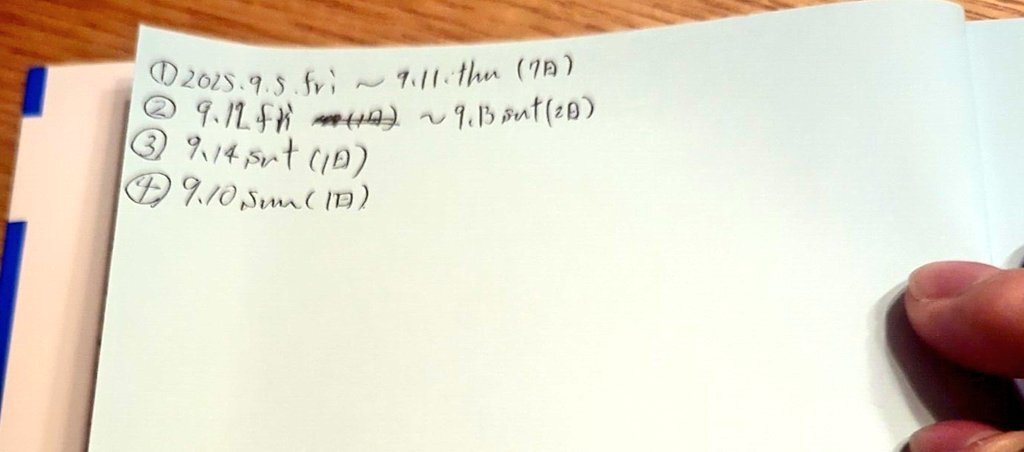 ①2025.9.5.fri ~ 9.11.thu (7日)
② 9.12 fri ~ 9.13 sat(2日)
③ 9.14 sat (1日)
④ 9.10 sun (1日)